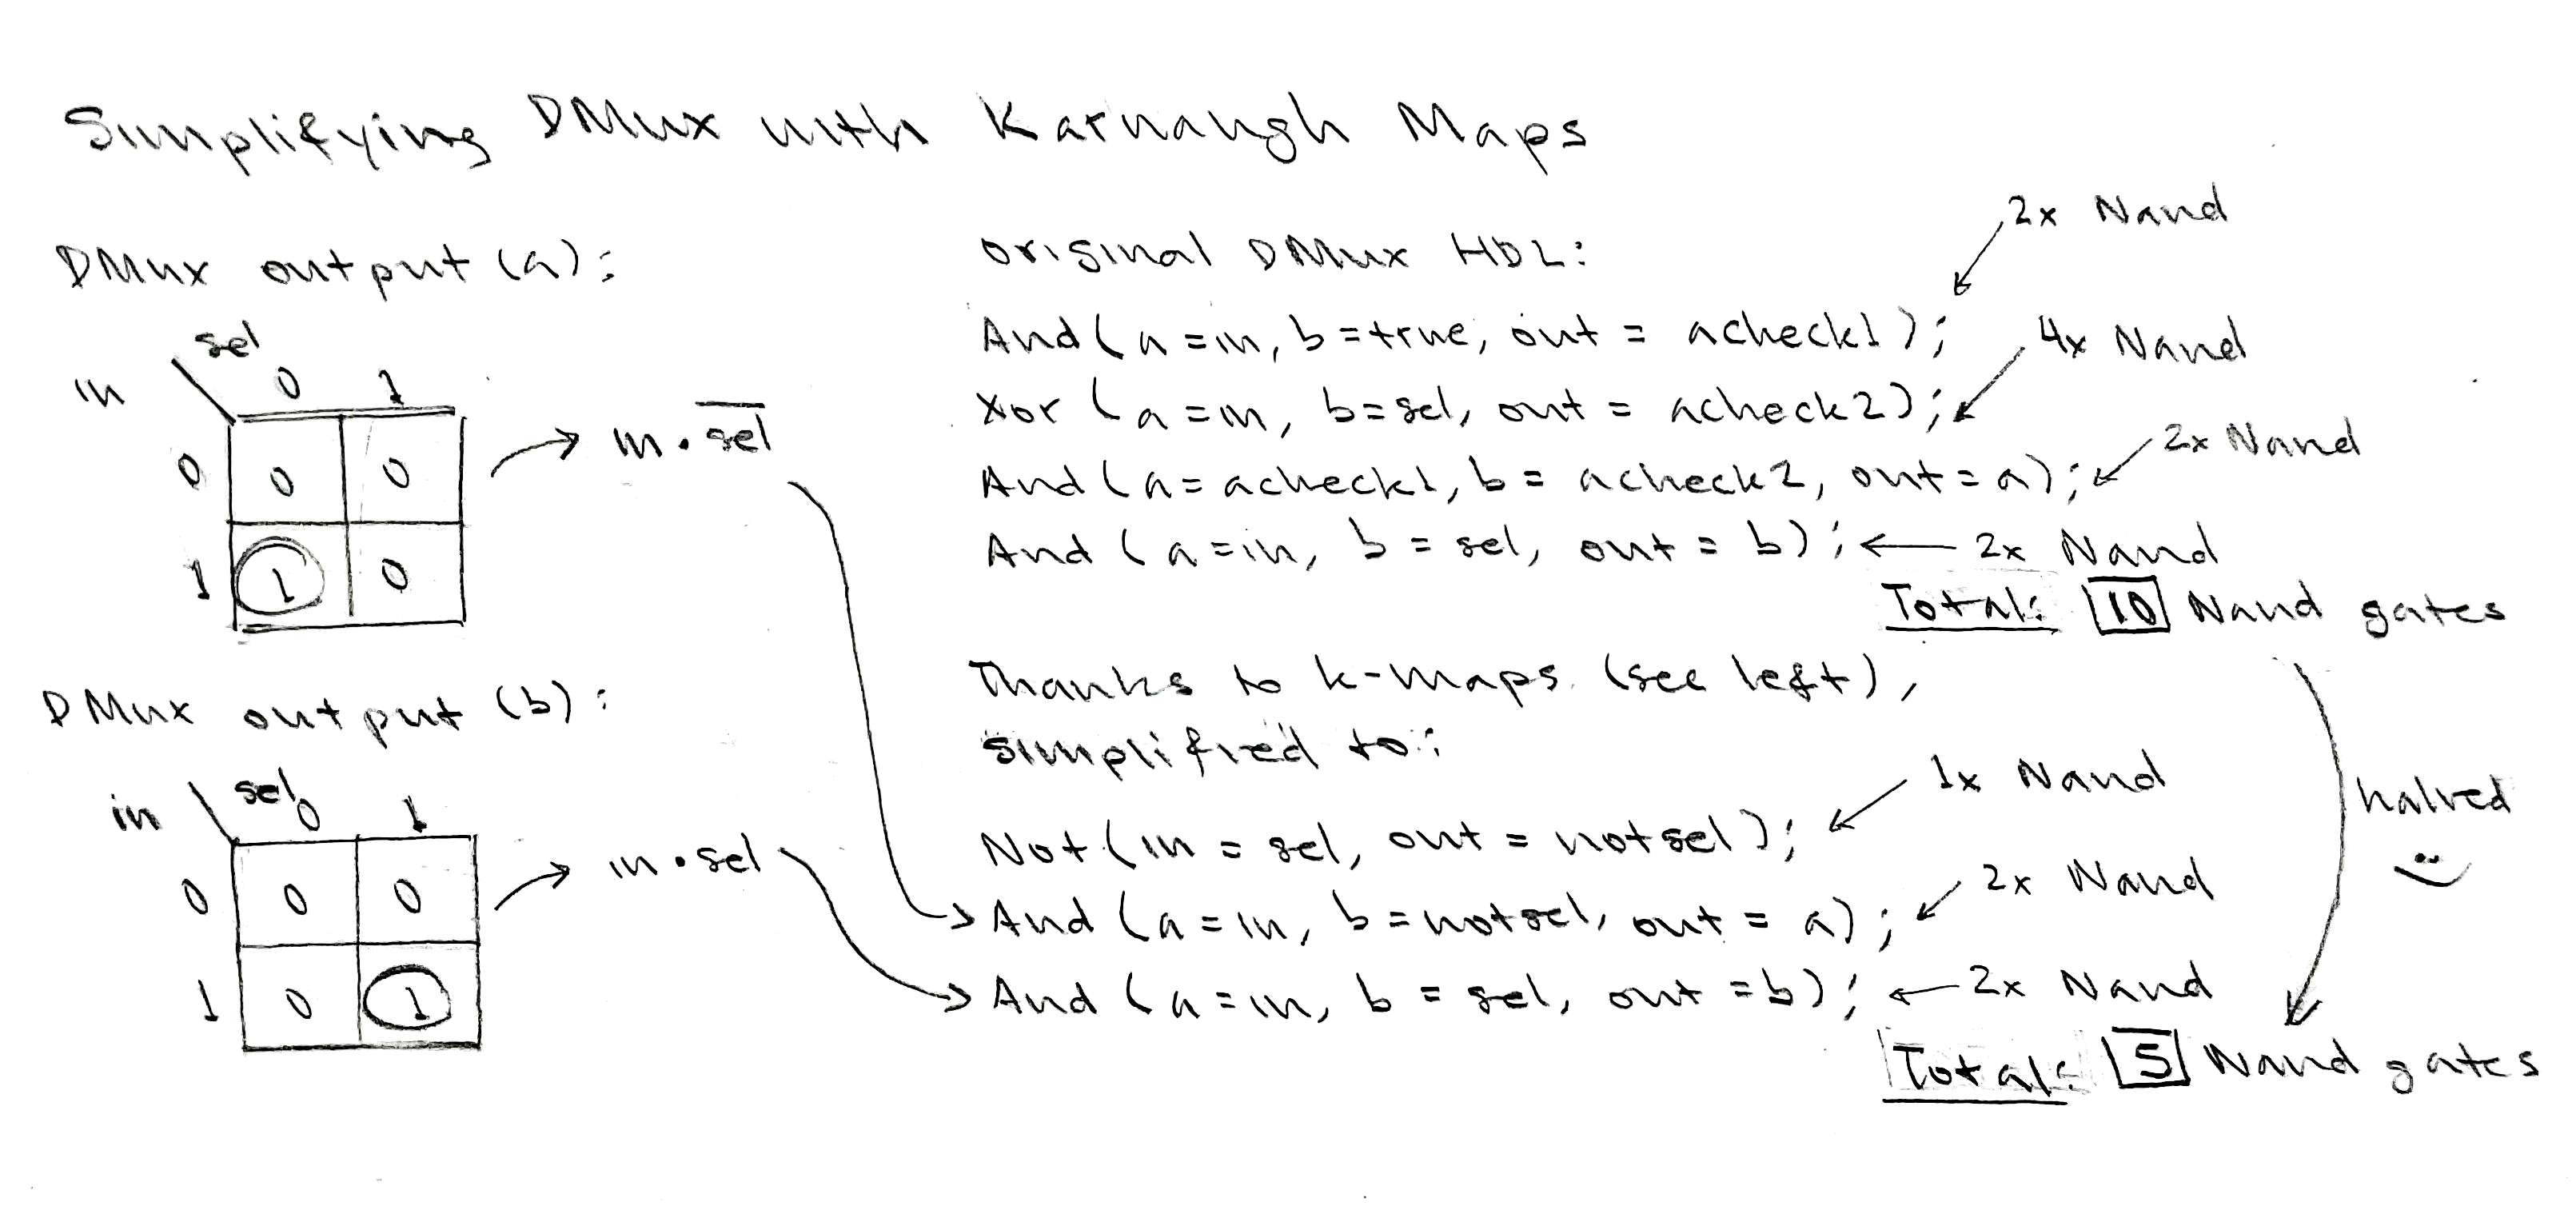 Simplifying DMux with Karnaugh Maps
DMux output (a):
sel
in
0 1
0 0 0
1 1 0
→ in · s̅e̅l̅
DMux output (b):
in sel
0 1
0 0 0
1 0 1
→ in · sel
original DMux HDL:
And (a = in, b = true, out = acheck1); 2x Nand
Xor (a = in, b = sel, out = acheck2); 4x Nand
And (a = acheck1, b = acheck2, out = a); 2x Nand
And (a = in, b = sel, out = b); ← 2x Nand
Total: 10 Nand gates
Thanks to k-maps (see left),
simplified to:
Not (in = sel, out = notsel); 1x Nand
And (a = in, b = notsel, out = a); 2x Nand
And (a = in, b = sel, out = b); ← 2x Nand
Total: 5 Nand gates
halved